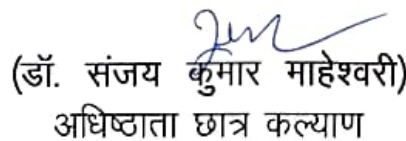 (डॉ. संजय कुमार माहेश्वरी)
अधिष्ठाता छात्र कल्याण